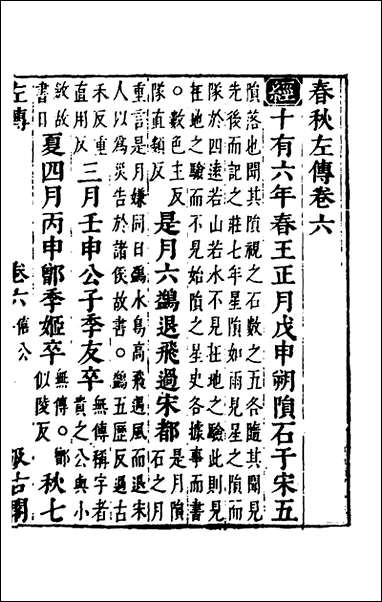 春秋左傳卷六
經十有六年春王正月戊申朔隕石于宋五
隕落也聞其隕視之石數之五各隨其聞見
先後而記之莊七年星隕如雨見星之隕而
隊於四遠若山若水不見在地之驗此則見
在地之驗而不見始隕之星史各據事而書
。數色主反
隊直類反
是月六鷁退飛過宋都
是月隕
石之月
重言是月嫌同日鷁水鳥高飛遇風而退宋
人以為災告於諸侯故書。鷁五歷反過古
禾反重
直用反
三月壬申公子季友卒
無傳稱字者
貴之公與小
斂故
書日
夏四月丙申鄫季姬卒
無傳。鄫
似陵反
秋七
左傳
卷六
僖公
汲古閣